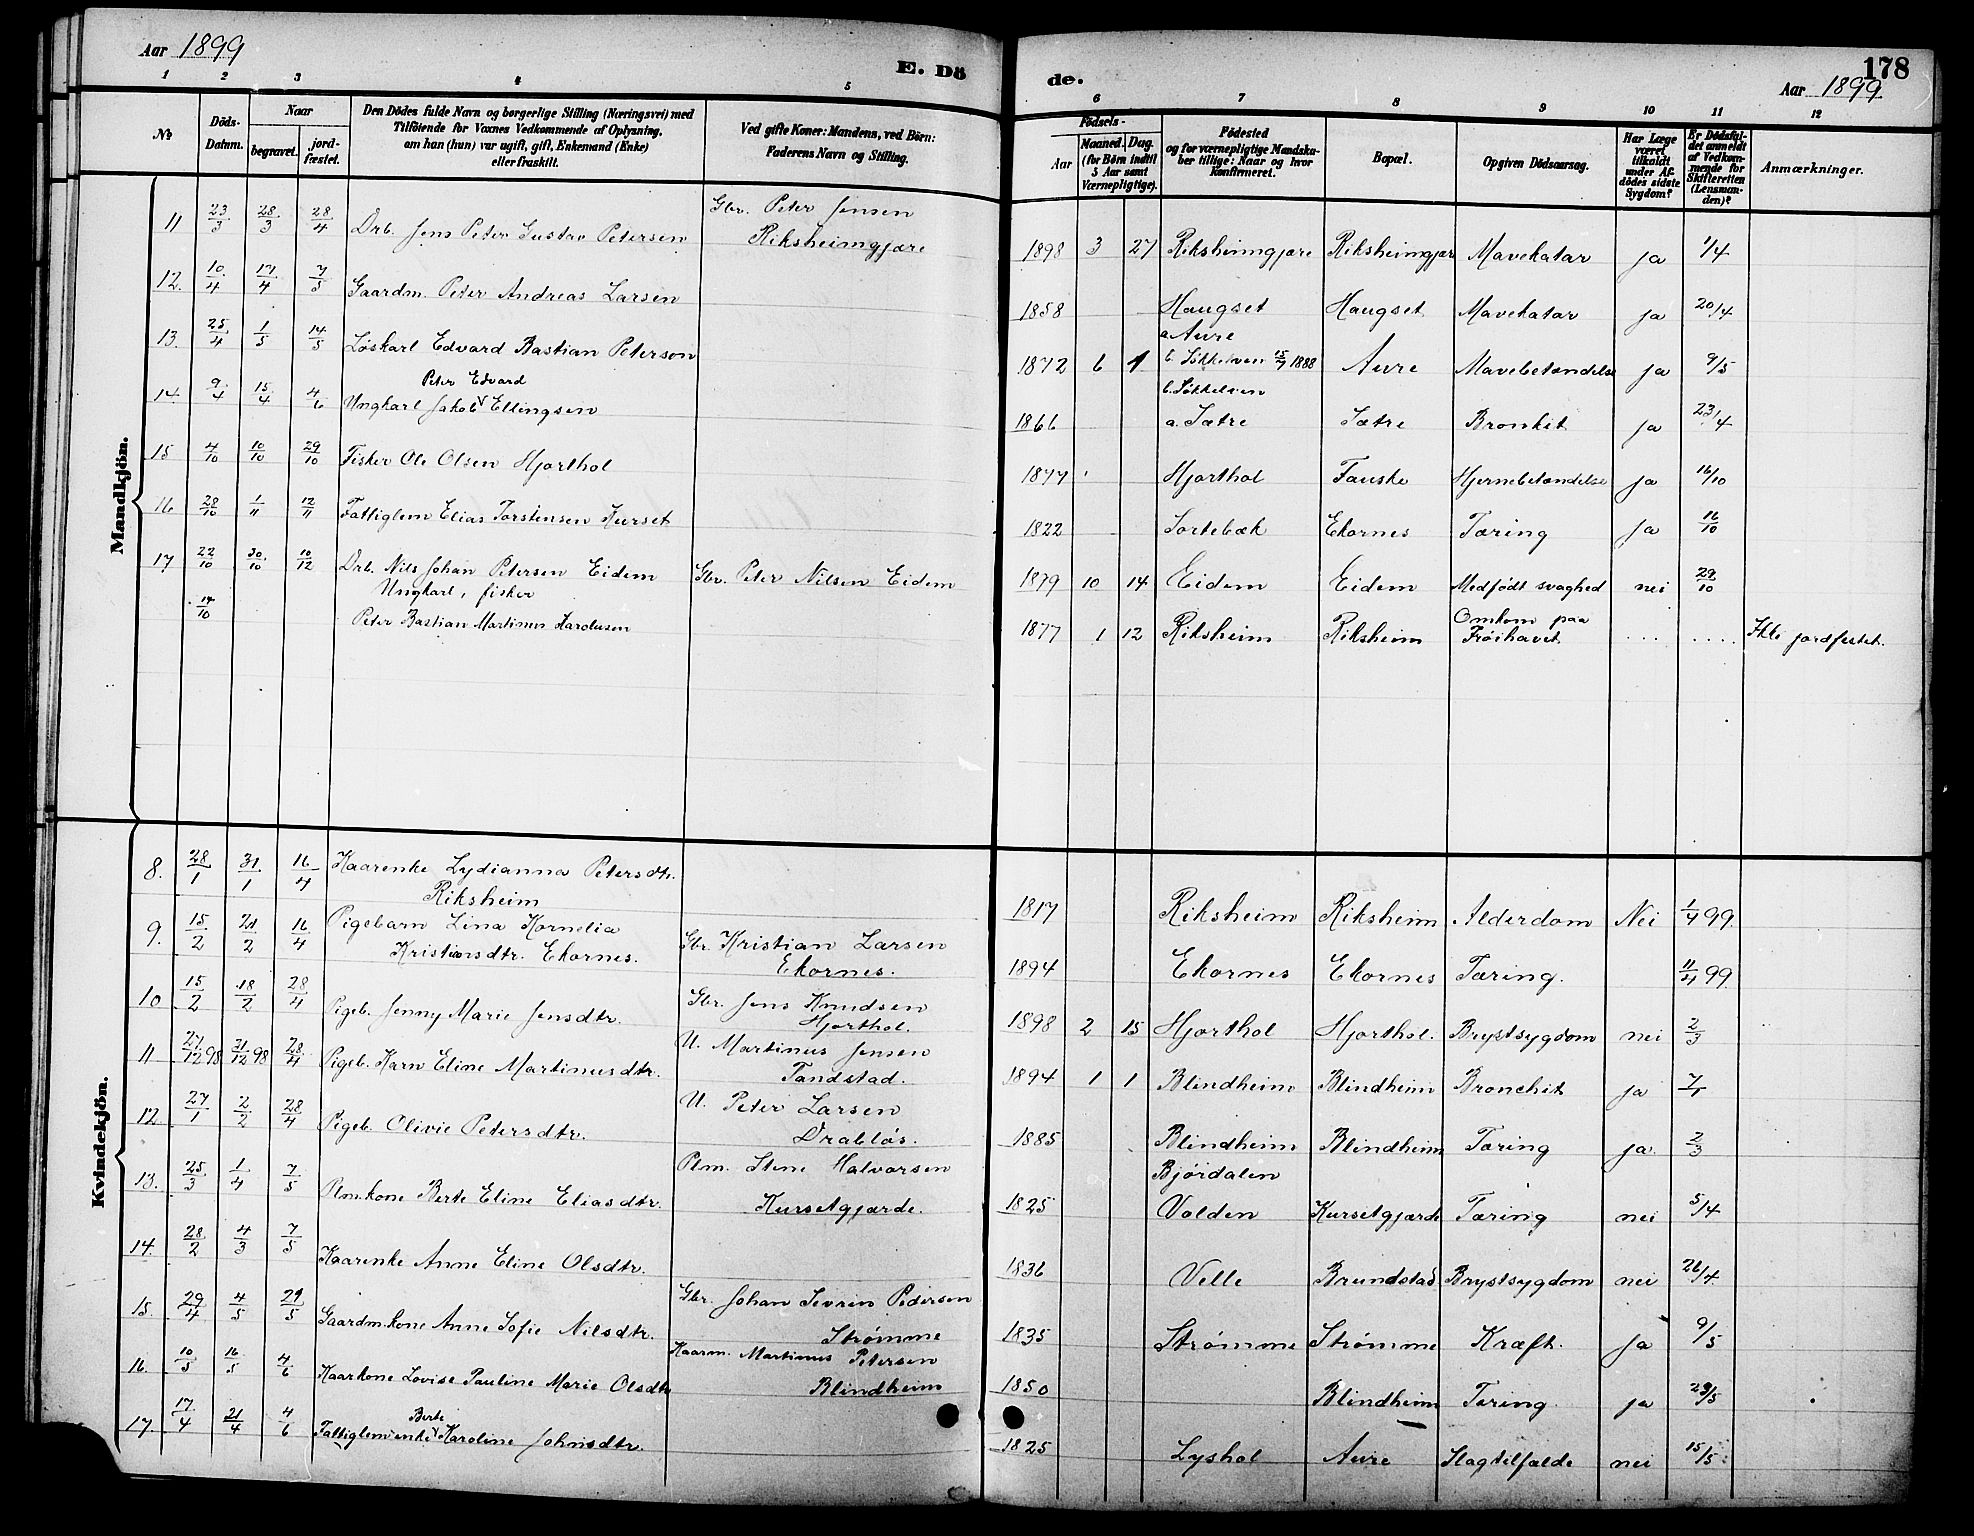 Aar 1899
E. Dö
de.
178
Aar 1899
1 2 3 4 5 6 7 8 9 10 11 12
No
Döds-
Datum.
Naar
begravet.
jord-
fæstet.
Den Dödes fulde Navn og borgerlige Stilling (Næringsvei) med
Tilföiende for Voxnes Vedkommende af Oplysning,
om han (hun) var ugift, gift, Enkemand (Enke)
eller fraskilt.
Ved gifte Koner: Mandens, ved Börn:
Faderens Navn og Stilling.
Födsels-
Aar
Maaned. Dag.
(for Börn indtil
5 Aar samt
Værnepligtige).
Födested
og for værnepligtige Mandska-
ber tillige: Naar og hvor
konfirmeret.
Bopæl.
Opgiven Dödsaarsag.
Har Læge
været
tilkaldt
under Af-
dödes sidste
Sygdom?
Er Dödsfal-
det anmeldt
af Vedkom-
mende for
Skifteretten
(Lensman-
den)?
Anmærkninger.
Mandkjön.
11 23/3 28/3 28/4 Drb. Jens Peter Gustav Petersen Gbr. Peter Jensen
Riksheimgjære 1898 3 27 Riksheimgjære Riksheimgjær Mavekatar ja 1/4
12. 10/4 17/4 7/5 Gaardm. Peter Andreas Larsen 1858 Haugset Haugset Mavekatar ja 20/4
13. 25/4 1/5 14/5 Løskarl Edvard Bastian Peterson 1872 6 1 a Aure
b. Søkkelven 15/7 1888 Aure Mavebetændelse ja 9/5
14. 9/4 15/4 4/6 Ungkarl Jakob Peter Edvard Ellingsen 1866 b. Søkkelven
a. Sætre Sætre Bronkit ja 23/4
15 4/10 10/10 29/10 Fisker Ole Olsen Hjorthol 1877 Hjorthol Fauske Hjernebetændelse ja 16/10
16 28/10 1/11 12/11 Fattiglem Elias Torstensen Kurset 1822 Sortebæk Ekornes Tæring ja 16/10
17 22/10 30/10 10/12 Drb. Nils Johan Petersen Eidem Gbr. Peter Nilsen Eidem 1879 10 14 Eidem Eidem Medfødt svaghed nei 29/10
14/10 Ungkarl, fisker
Peter Bastian Martinus Karolusen 1877 1 12 Riksheim Riksheim Omkom paa
Frøihavet .... .... Ikke jordfestet.
Kvindekjön.
8. 28/1 31/1 16/4 Kaarenke Lydianna Petersdtr.
Riksheim 1817 Riksheim Riksheim Alderdom Nei 1/4 99.
9. 15/2 21/2 16/4 Pigebarn Lina Kornelia
Kristiansdtr. Ekornes. Gbr. Kristian Larsen
Ekornes. 1894 Ekornes Ekornes Tæring. 11/4 99.
10 15/2 18/2 28/4 Pigeb. Jenny Marie Jensdtr. Gbr. Jens Knudsen
Hjorthol. 1898 2 15 Hjorthol Hjorthol. Brystsygdom nei 2/3
11 27/12 98 31/12 98 28/4 Pigeb. Karn Eline Martinusdtr. U. Martinus Jensen
Tandstad. 1894 1 1 Blindheim Blindheim Bronchit ja 7/1
12. 27/1 2/2 28/4 Pigeb. Olivie Petersdtr. U. Peter Larsen
Drabløs. 1885 Blindheim Blindheim Tæring ja 2/3
13. 25/3 1/4 7/5 Plm.kone Berte Eline Eliasdtr. Plm. Stene Halvorsen
Kursetgjærde. 1825 Bjørdalen
Volden Kursetgjærde Tæring nei 5/4
14. 28/2 4/3 7/5 Kaarenke Anne Eline Olsdtr. 1836 Velle Brundstad Brystsygdom nei 26/4
15. 29/4 4/5 29/5 Gaardm.kone Anne Sofie Nilsdtr. Gbr. Johan Severin Pedersen
Strømme 1835 Strømme Strømme Kræft. Ja 9/5
16. 10/5 16/5 4/6 Kaarkone Lovise Pauline Marie Olsdtr Kaarm. Martinus Petersen
Blindheim 1850 Blindheim Tæring. ja 29/5
17. 17/4 21/4 4/6 Fattiglem enke Berte Karoline Johnsdtr. 1825 Lyshol Aure Slagtilfælde nei 15/5